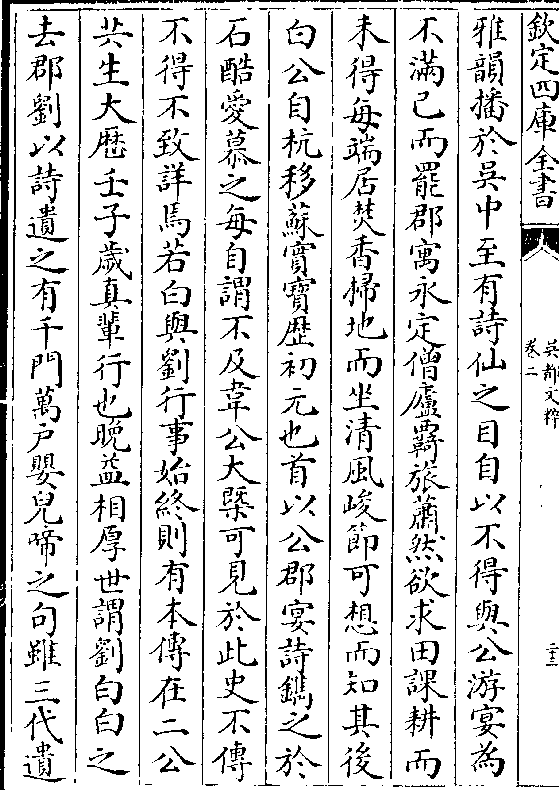 欽定四庫全書
吳都文粹
卷二
二十二
雅韻播於吳中至有詩仙之目自以不得與公游宴為
不滿已而罷郡寓永定僧廬覊旅蕭然欲求田課耕而
未得每端居焚香掃地而坐清風峻節可想而知其後
白公自杭移蘇實寶歴初元也首以公郡宴詩鐫之於
石酷愛慕之每自謂不及韋公大槩可見於此史不傳
不得不致詳焉若白與劉行事始終則有本傳在二公
共生大歴壬子歲真輩行也晚益相厚世謂劉白白之
去郡劉以詩遺之有千門萬户嬰兒啼之句雖三代遺